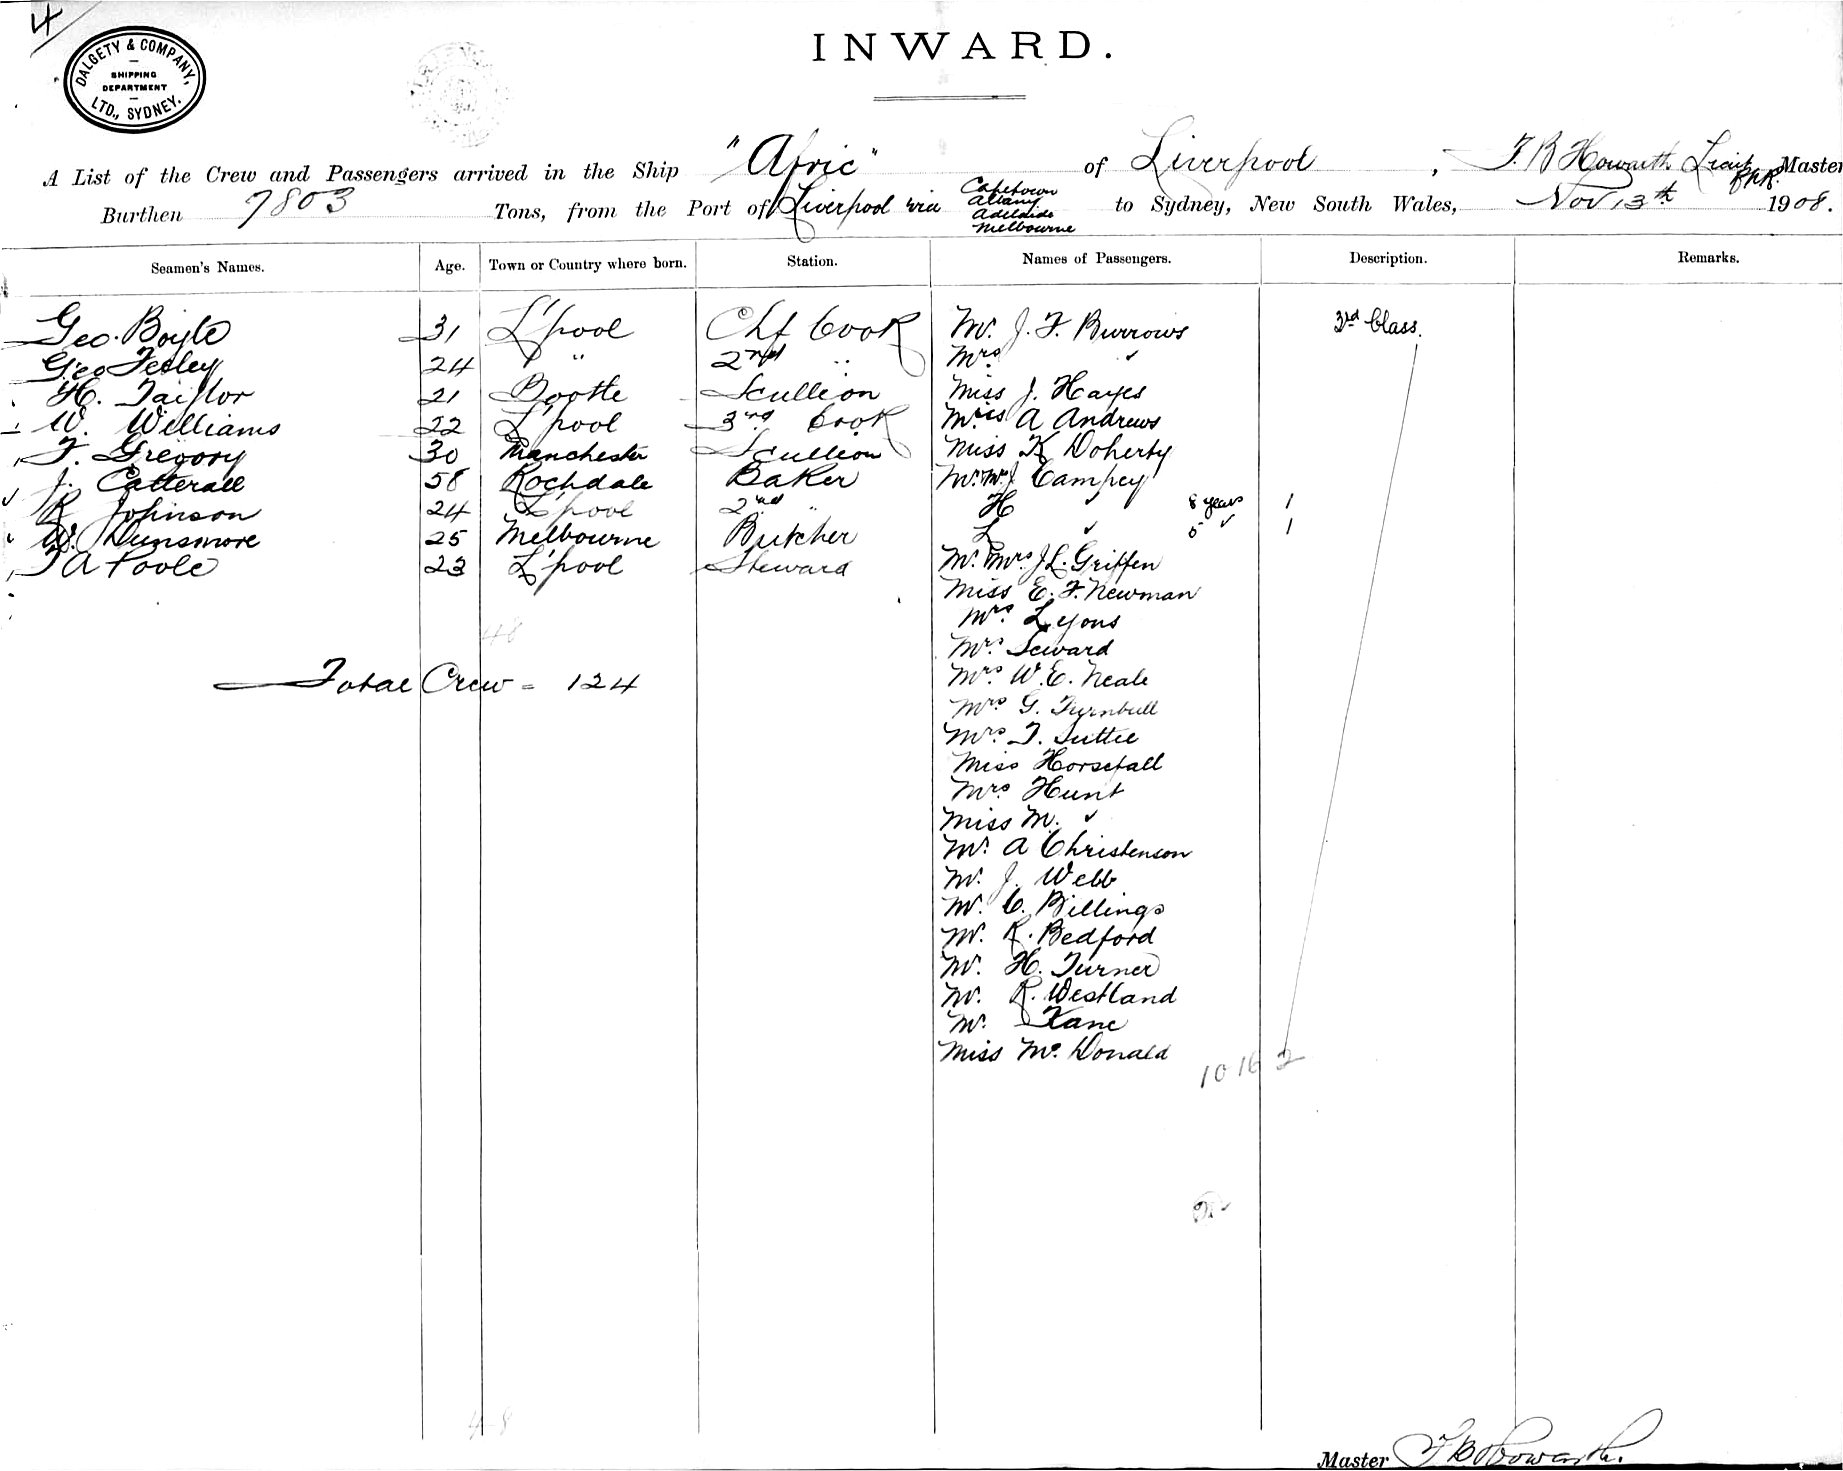 4
DALGETY & COMPANY,
SHIPPING
DEPARTMENT
LTD., SYDNEY.
INWARD.
A List of the Crew and Passengers arrived in the Ship "Afric" of Liverpool, F. B Howarth Lieut RNR. Master
Burthen 7803 Tons, from the Port of Liverpool via Capetown Albany Adelaide Melbourne to Sydney, New South Wales, Nov 13th 1908.
Seamen's Names. Age. Town or Country where born. Station. Names of Passengers. Description. Remarks.
Geo. Boyle 31 L'pool Chf Cook Mr. J. F. Burrows 3rd Class.
Geo 24 " " 2nd " Mrs "
H. Taylor 21 Bootle Scullion Miss J. Hayes
W. Williams 22 L'pool 3rd Cook A Andrews
F. Gregory 30 Manchester Scullion Miss K Doherty
J. Catterall 58 Rochdale Baker Mr. Mrs J Campey
R Johnson 24 L'pool 2nd " H " 8 years 1
W. Dunsmore 25 Melbourne Butcher L " 5 " 1
T A Poole 23 L'pool Steward Mr. Mrs. J L. Griffen
Miss E. F. Newman
48 Mrs. Lyons
Mrs. Seward
Total Crew = 124 Mrs. W. E. Neale
Mrs G. Turnbull
Mrs. T. Suttie
Miss Horsefall
Mrs. Hunt
Miss M. "
Mr. A Christenson
Mr. J. Webb
Mr. C. Billings
Mr. R. Bedford
Mr. H. Turner
Mr. R. Westland
Mr. Kane
Miss Mc. Donald
10 16 2
48
Master F B Howarth.